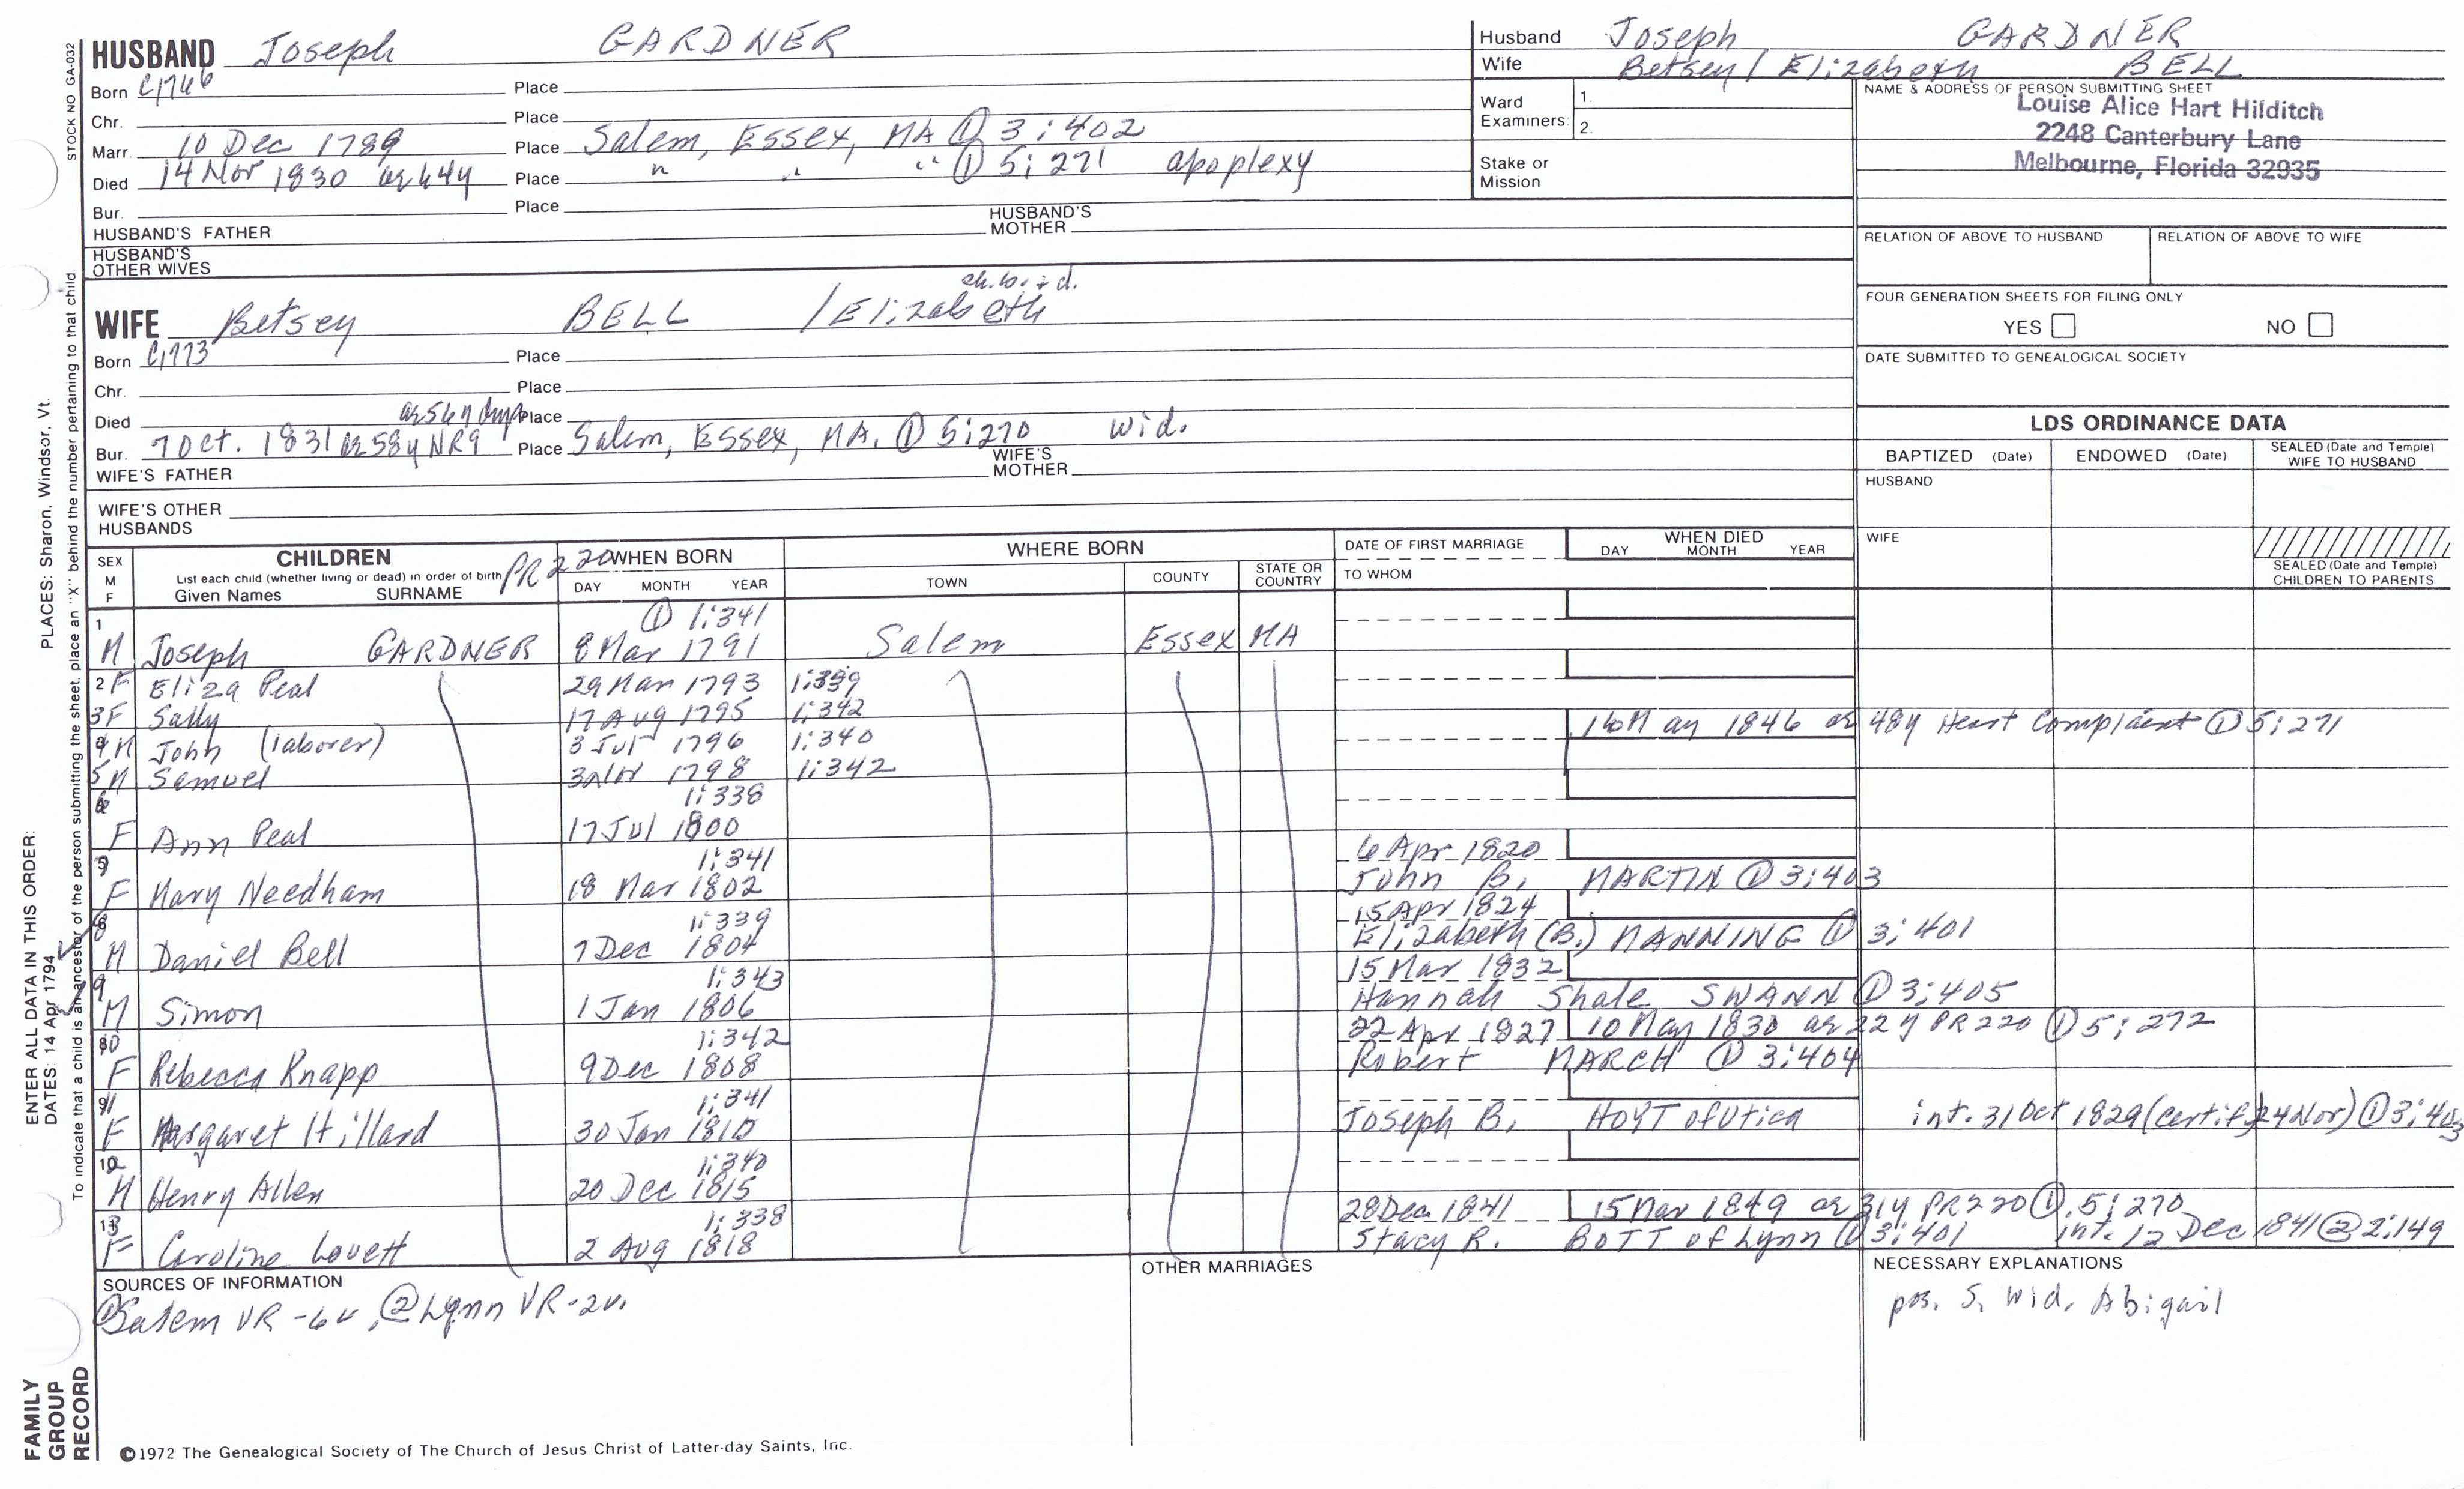 HUSBAND Joseph GARDNER
Born c1746 Place
Chr. Place
Marr. 10 Dec 1789 Place Salem, Essex, MA ① 3:402
Died 14 Nov 1830 Place " " " ① 5:271 apoplexy
Bur. Place
HUSBAND'S FATHER HUSBAND'S MOTHER
HUSBAND'S OTHER WIVES
ch. b. + d.
WIFE Betsey BELL /Elizabeth
Born c1773 Place
Chr. Place
Died Place
Bur. 7 Oct. 1831 ae 58y NR9 Place Salem, Essex, MA. ① 5:270 wid.
WIFE'S FATHER WIFE'S MOTHER
WIFE'S OTHER HUSBANDS
Husband Joseph GARDNER
Wife Betsey / Elizabeth BELL
Ward Examiners: 1.
2.
Stake or Mission
NAME & ADDRESS OF PERSON SUBMITTING SHEET
Louise Alice Hart Hilditch
2248 Canterbury Lane
Melbourne, Florida 32935
RELATION OF ABOVE TO HUSBAND RELATION OF ABOVE TO WIFE
FOUR GENERATION SHEETS FOR FILING ONLY
YES NO
DATE SUBMITTED TO GENEALOGICAL SOCIETY
LDS ORDINANCE DATA
BAPTIZED (Date) ENDOWED (Date) SEALED (Date and Temple) WIFE TO HUSBAND
HUSBAND
WIFE
SEALED (Date and Temple) CHILDREN TO PARENTS
SEX M F
CHILDREN
List each child (whether living or dead) in order of birth
Given Names SURNAME
PR220
WHEN BORN
DAY MONTH YEAR
WHERE BORN
TOWN COUNTY STATE OR COUNTRY
DATE OF FIRST MARRIAGE
TO WHOM
WHEN DIED
DAY MONTH YEAR
① 1:341
1 M Joseph GARDNER 8 Mar 1791 Salem Essex MA
2 F Eliza Peal 29 Mar 1793 1:339
3 F Sally 17 Aug 1795 1:342
16 May 1846 ae 48y Heart Complaint ① 5:271
4 M John (laborer) 3 Jul 1796 1:340
5 M Samuel 3 Nov 1798 1:342
1:338
6 F Ann Peal 17 Jul 1800
6 Apr 1820
1:341
F Mary Needham 18 Mar 1802 John B. MARTIN ① 3:403
15 Apr 1824
1:339
8 M Daniel Bell 7 Dec 1804 Elizabeth (B.) MANNING ① 3:401
15 Mar 1832
1:343
9 M Simon 1 Jan 1806 Hannah Shale SWANN ① 3:405
22 Apr 1827 10 May 1830 ae 22y PR220 ① 5:272
1:342
10 F Rebecca Knapp 9 Dec 1808 Robert MARCH ① 3:404
1:341
11 F Margaret Hillard 30 Jan 1810 Joseph B. HOYT of Utica int. 31 Oct 1829 (certif. 24 Nov) ① 3:403
1:340
12 M Henry Allen 20 Dec 1815
28 Dec 1841 15 Mar 1849 ae 31y PR220 ① 5:270
1:338
13 F Caroline Lovett 2 Aug 1818 Stacy R. BOTT of Lynn ① 3:401 int. 12 Dec 1841 ② 2:149
SOURCES OF INFORMATION
① Salem VR-6v, ② Lynn VR-2v.
OTHER MARRIAGES
NECESSARY EXPLANATIONS
pos. S. Wid. Abigail
©1972 The Genealogical Society of The Church of Jesus Christ of Latter-day Saints, Inc.
STOCK NO GA-032
PLACES: Sharon, Windsor, Vt.
To indicate that a child is an ancestor of the person submitting the sheet, place an "X" behind the number pertaining to that child
ENTER ALL DATA IN THIS ORDER:
DATES: 14 Apr 1794
FAMILY GROUP RECORD